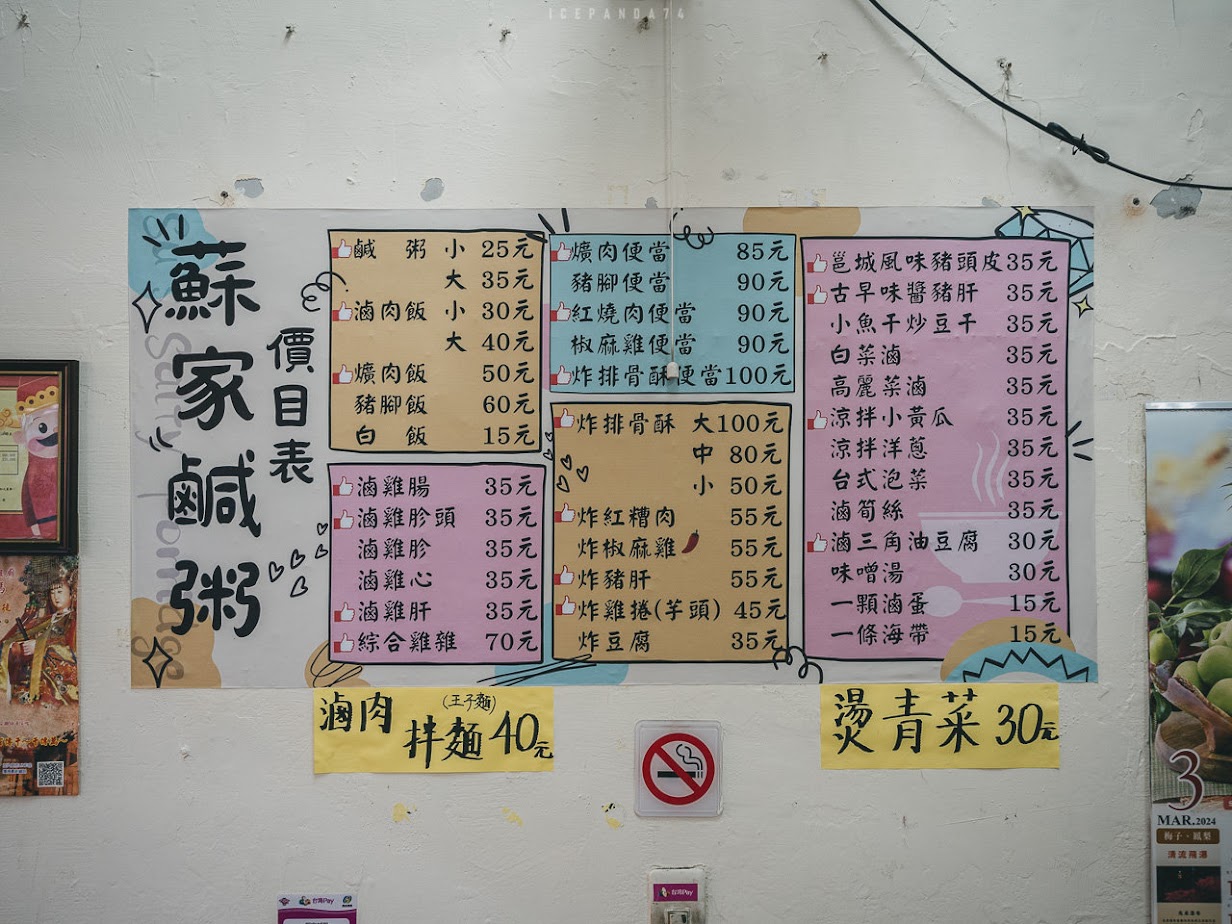 ICEPANDA74
蘇家鹹粥
價目表
鹹 粥 小 25元
大 35元
滷肉飯 小 30元
大 40元
爌肉飯 50元
豬腳飯 60元
白 飯 15元
滷雞腸 35元
滷雞胗頭 35元
滷雞胗 35元
滷雞心 35元
滷雞肝 35元
綜合雞雜 70元
爌肉便當 85元
豬腳便當 90元
紅燒肉便當 90元
椒麻雞便當 90元
炸排骨酥便當100元
炸排骨酥 大100元
中 80元
小 50元
炸紅糟肉 55元
炸椒麻雞 55元
炸豬肝 55元
炸雞捲(芋頭) 45元
炸豆腐 35元
邕城風味豬頭皮35元
古早味醬豬肝 35元
小魚干炒豆干 35元
白菜滷 35元
高麗菜滷 35元
涼拌小黃瓜 35元
涼拌洋蔥 35元
台式泡菜 35元
滷筍絲 35元
滷三角油豆腐 30元
味噌湯 30元
一顆滷蛋 15元
一條海帶 15元
滷肉 (王子麵)
拌麵 40元
燙青菜 30元
台灣Pay
台灣Pay
3
MAR.2024
梅子·鳳梨